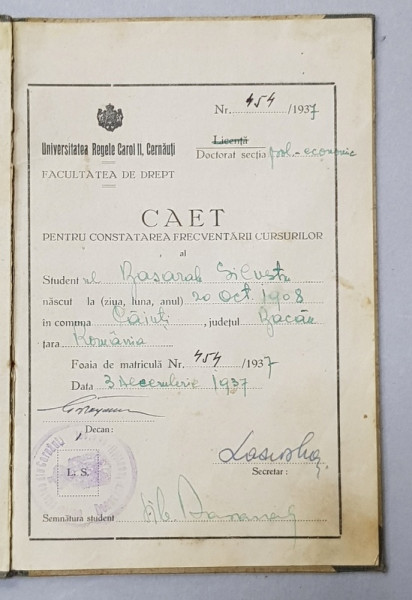 Nr. 454 /1937
Universitatea Regele Carol II, Cernăuți
Licență
Doctorat secția pol.-economic
FACULTATEA DE DREPT
CAET
PENTRU CONSTATAREA FRECVENTĂRII CURSURILOR
al
Student ul Basarab Silvestru
născut la (ziua, luna, anul) 20 Oct. 1908
în comuna Căiuți, județul Bacău
țara România
Foaia de matriculă Nr. 454/1937
Data 3 decembrie 1937
Decan:
L. S.
Secretar:
Semnătura student